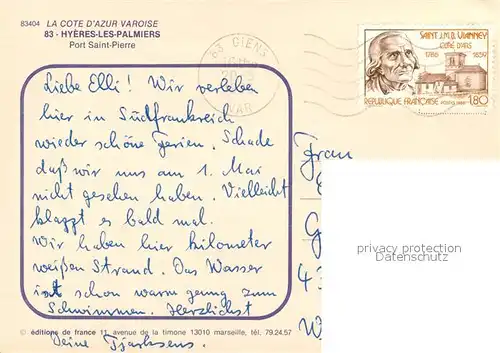 83404 LA COTE D'AZUR VAROISE
83 - HYÈRES-LES-PALMIERS
Port Saint-Pierre
83 GIENS
VAR
SAINT J.M.B. VIANNEY
CURÉ D'ARS
1786 1859
RÉPUBLIQUE FRANÇAISE
1,80
Liebe Elli! Wir verleben
hier in Südfrankreich
wieder schöne Ferien. Schade
daß wir uns am 1. Mai
nicht gesehen haben. Vielleicht
klappt es bald mal.
Wir haben hier kilometer
weißen Strand. Das Wasser
ist schon warm genug zum
Schwimmen. Herzlichst
Deine
Frau
privacy protection
Datenschutz
© éditions de france 11, avenue de la timone 13010 marseille, tél. 79.24.57